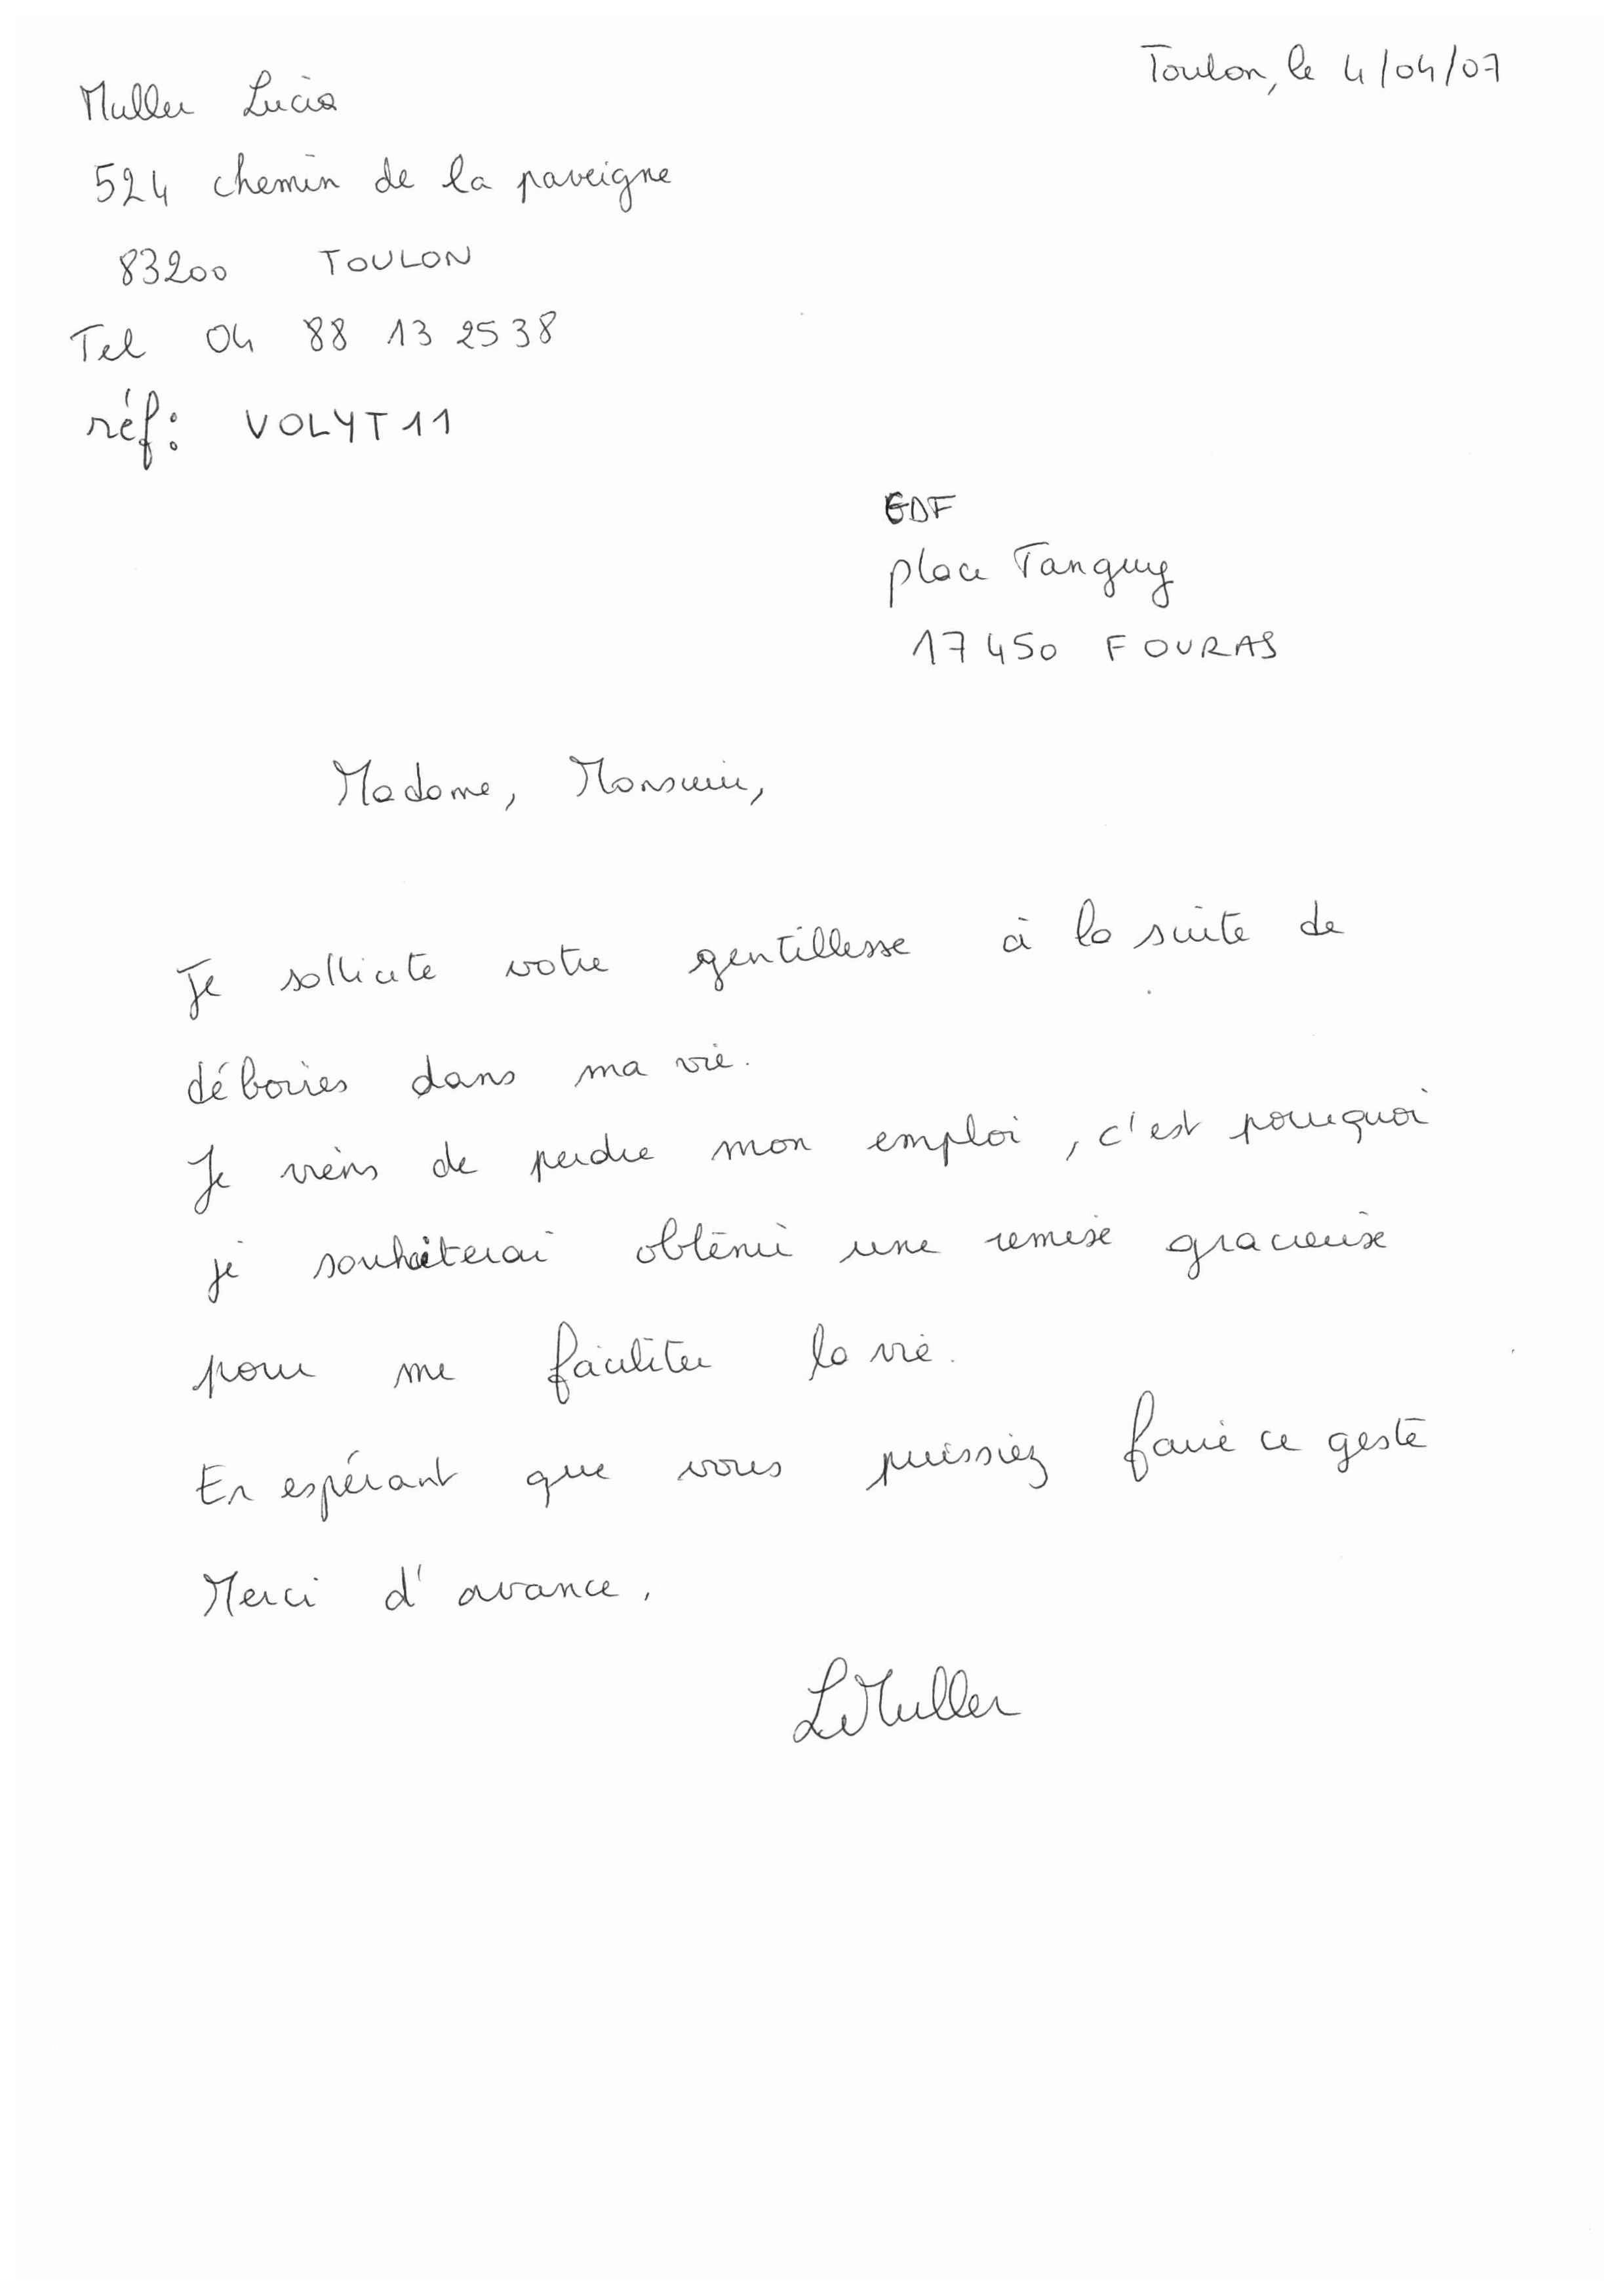 Toulon, le 4/04/07
Muller Lucia
524 chemin de la paveigne
83200 TOULON
Tel 04 88 13 25 38
réf: VOLYT11
EDF
place Tanguy
17450 FOURAS
Madame, Monsieur,
Je sollicite votre gentillesse à la suite de
déboires dans ma vie.
Je viens de perdre mon emploi, c'est pourquoi
je souhaiterai obtenir une remise gracieuse
pour me faciliter la vie.
En espérant que vous puissiez faire ce geste
Merci d'avance.
L Muller